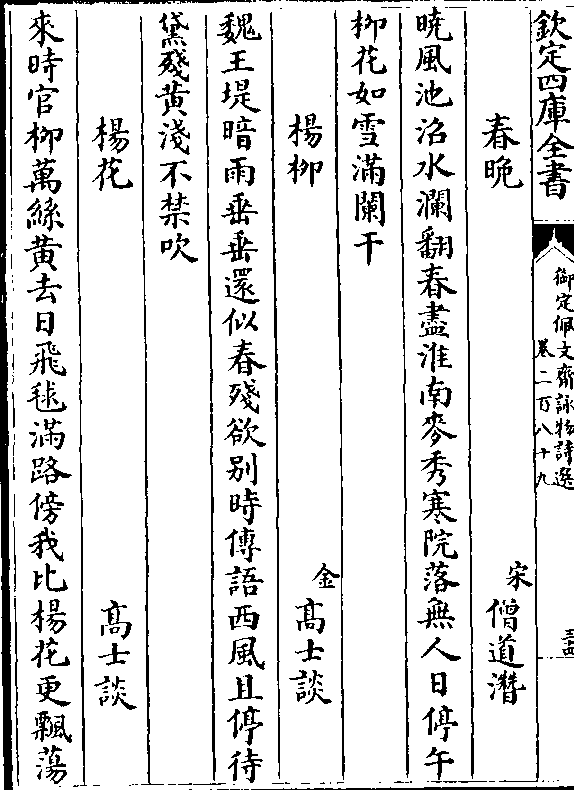 欽定四庫全書
御定佩文齋詠物詩選
卷二百八十九
春晚　宋　僧道潛
曉風池沼水瀾翻春盡淮南麥秀寒院落無人日停午
柳花如雪滿闌干
楊柳　金　高士談
魏王堤暗雨垂垂還似春殘欲别時傳語西風且停待
黛殘黄淺不禁吹
楊花　高士談
來時官柳萬絲黄去日飛毬滿路傍我比楊花更飄蕩